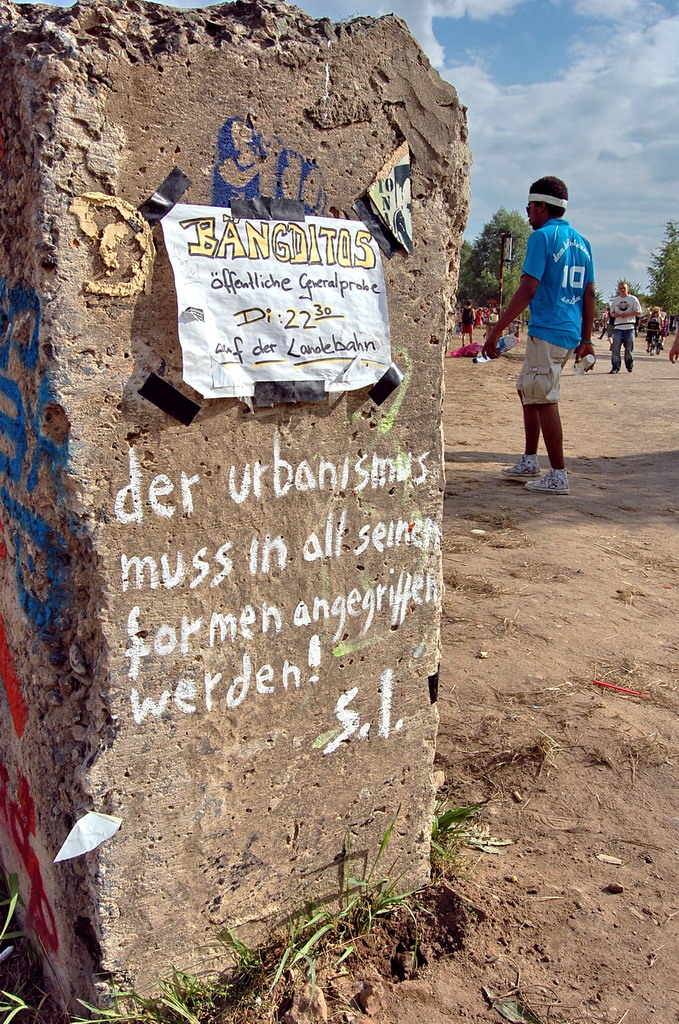 BÄNGDITOS
öffentliche Generalprobe
Di: 22 30
auf der Landebahn
der urbanismus
muss in all seinen
formen angegriffen
werden!
S.I.
ION
10